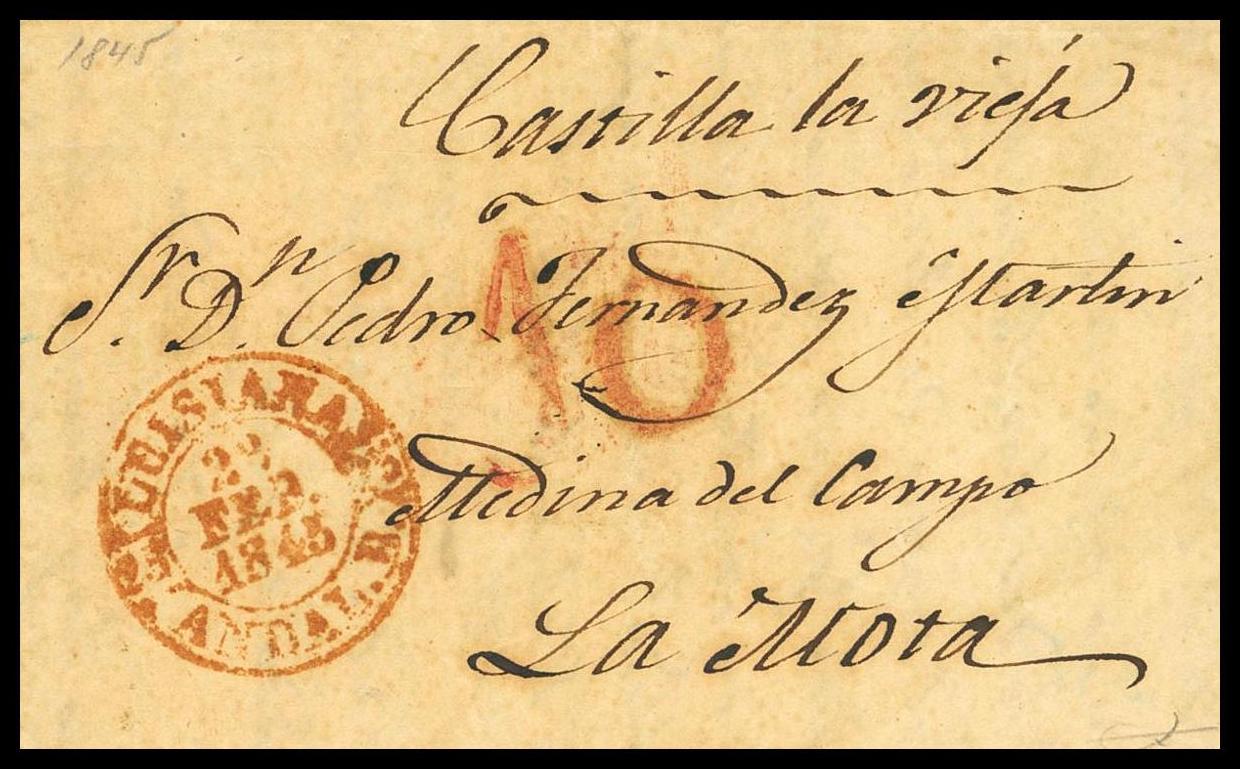 1845
Castilla la vieja
10
Sr. Dn. Pedro Fernandez Martin
LA LUISIANA
FEB.
1845
ANDAL. B.
Medina del Campo
La Mota